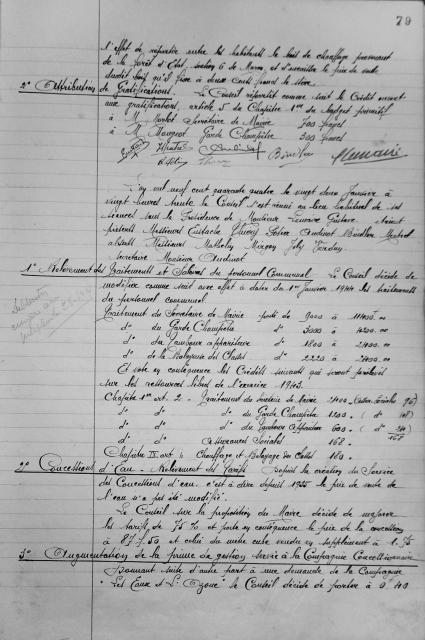 79
l'effet de répartir entre les habitants le bois de chauffage provenant
de la forêt d'Etat, section 6 de Maron, et d'en fixer le prix de vente
dudit bois qu'il fixe à deux cents francs le stère.
2° Attribution de Gratifications. Le Conseil répartit comme suit le Crédit ouvert
aux gratifications, article 5 du Chapitre 1er du budget primitif
à M. Secrétaire de Mairie 700 francs
à M. Mangeot Garde Champêtre 300 francs
L'an mil neuf cent quarante quatre le vingt deux Janvier à
vingt heures trente le Conseil s'est réuni au lieu habituel de ses
séances sous la Présidence de Monsieur Lemaire Gustave. Etaient
présents Messieurs Eustache Thiéry Audinot
absents Messieurs Mathelin Joly
Secrétaire Monsieur Audinot
1° Relèvement des Traitements et Salaires du personnel Communal. Le Conseil décide de
modifier comme suit avec effet à dater du 1er Janvier 1944 les traitements
du personnel communal
Traitement du Secrétaire de Mairie porté de 9000 à 11400.00
d° du Garde Champêtre 3000 à 4200.00
d° du Tambour appariteur 1800 à 2400.00
d° de la Balayeuse des Classes 2220 à 2400.00
Et vote en conséquence les Crédits suivants qui seront prélevés
sur les ressources libres de l'exercice 1943.
Chapitre 1er art. 2. Traitement du Secrétaire de Mairie 2400
d° d° d° du Garde Champêtre 1200. (d°
d° d° d° du Tambour Appariteur 600. (d°
d° d° Assurances Sociales 168. 168
Chapitre IX art. Chauffage et Balayage des Classes 180.
2° Concessions d'Eau - Relèvement des Tarifs. Depuis la création du Service
des Concessions d'eau, c'est à dire depuis 1925 le prix de vente de
l'eau n'a pas été modifié.
Le Conseil sur la proposition du Maire décide de majorer
les tarifs de 75 % et porte en conséquence le prix de la concession
à 87f.50 et celui du mètre cube vendu en supplément à 1.75
3° Augmentation de la prime de gestion servie à la Compagnie Concessionnaire
Donnant suite d'autre part à une demande de la Compagnie
"Les Eaux et l'Ozone" le Conseil décide de porter à 0.40